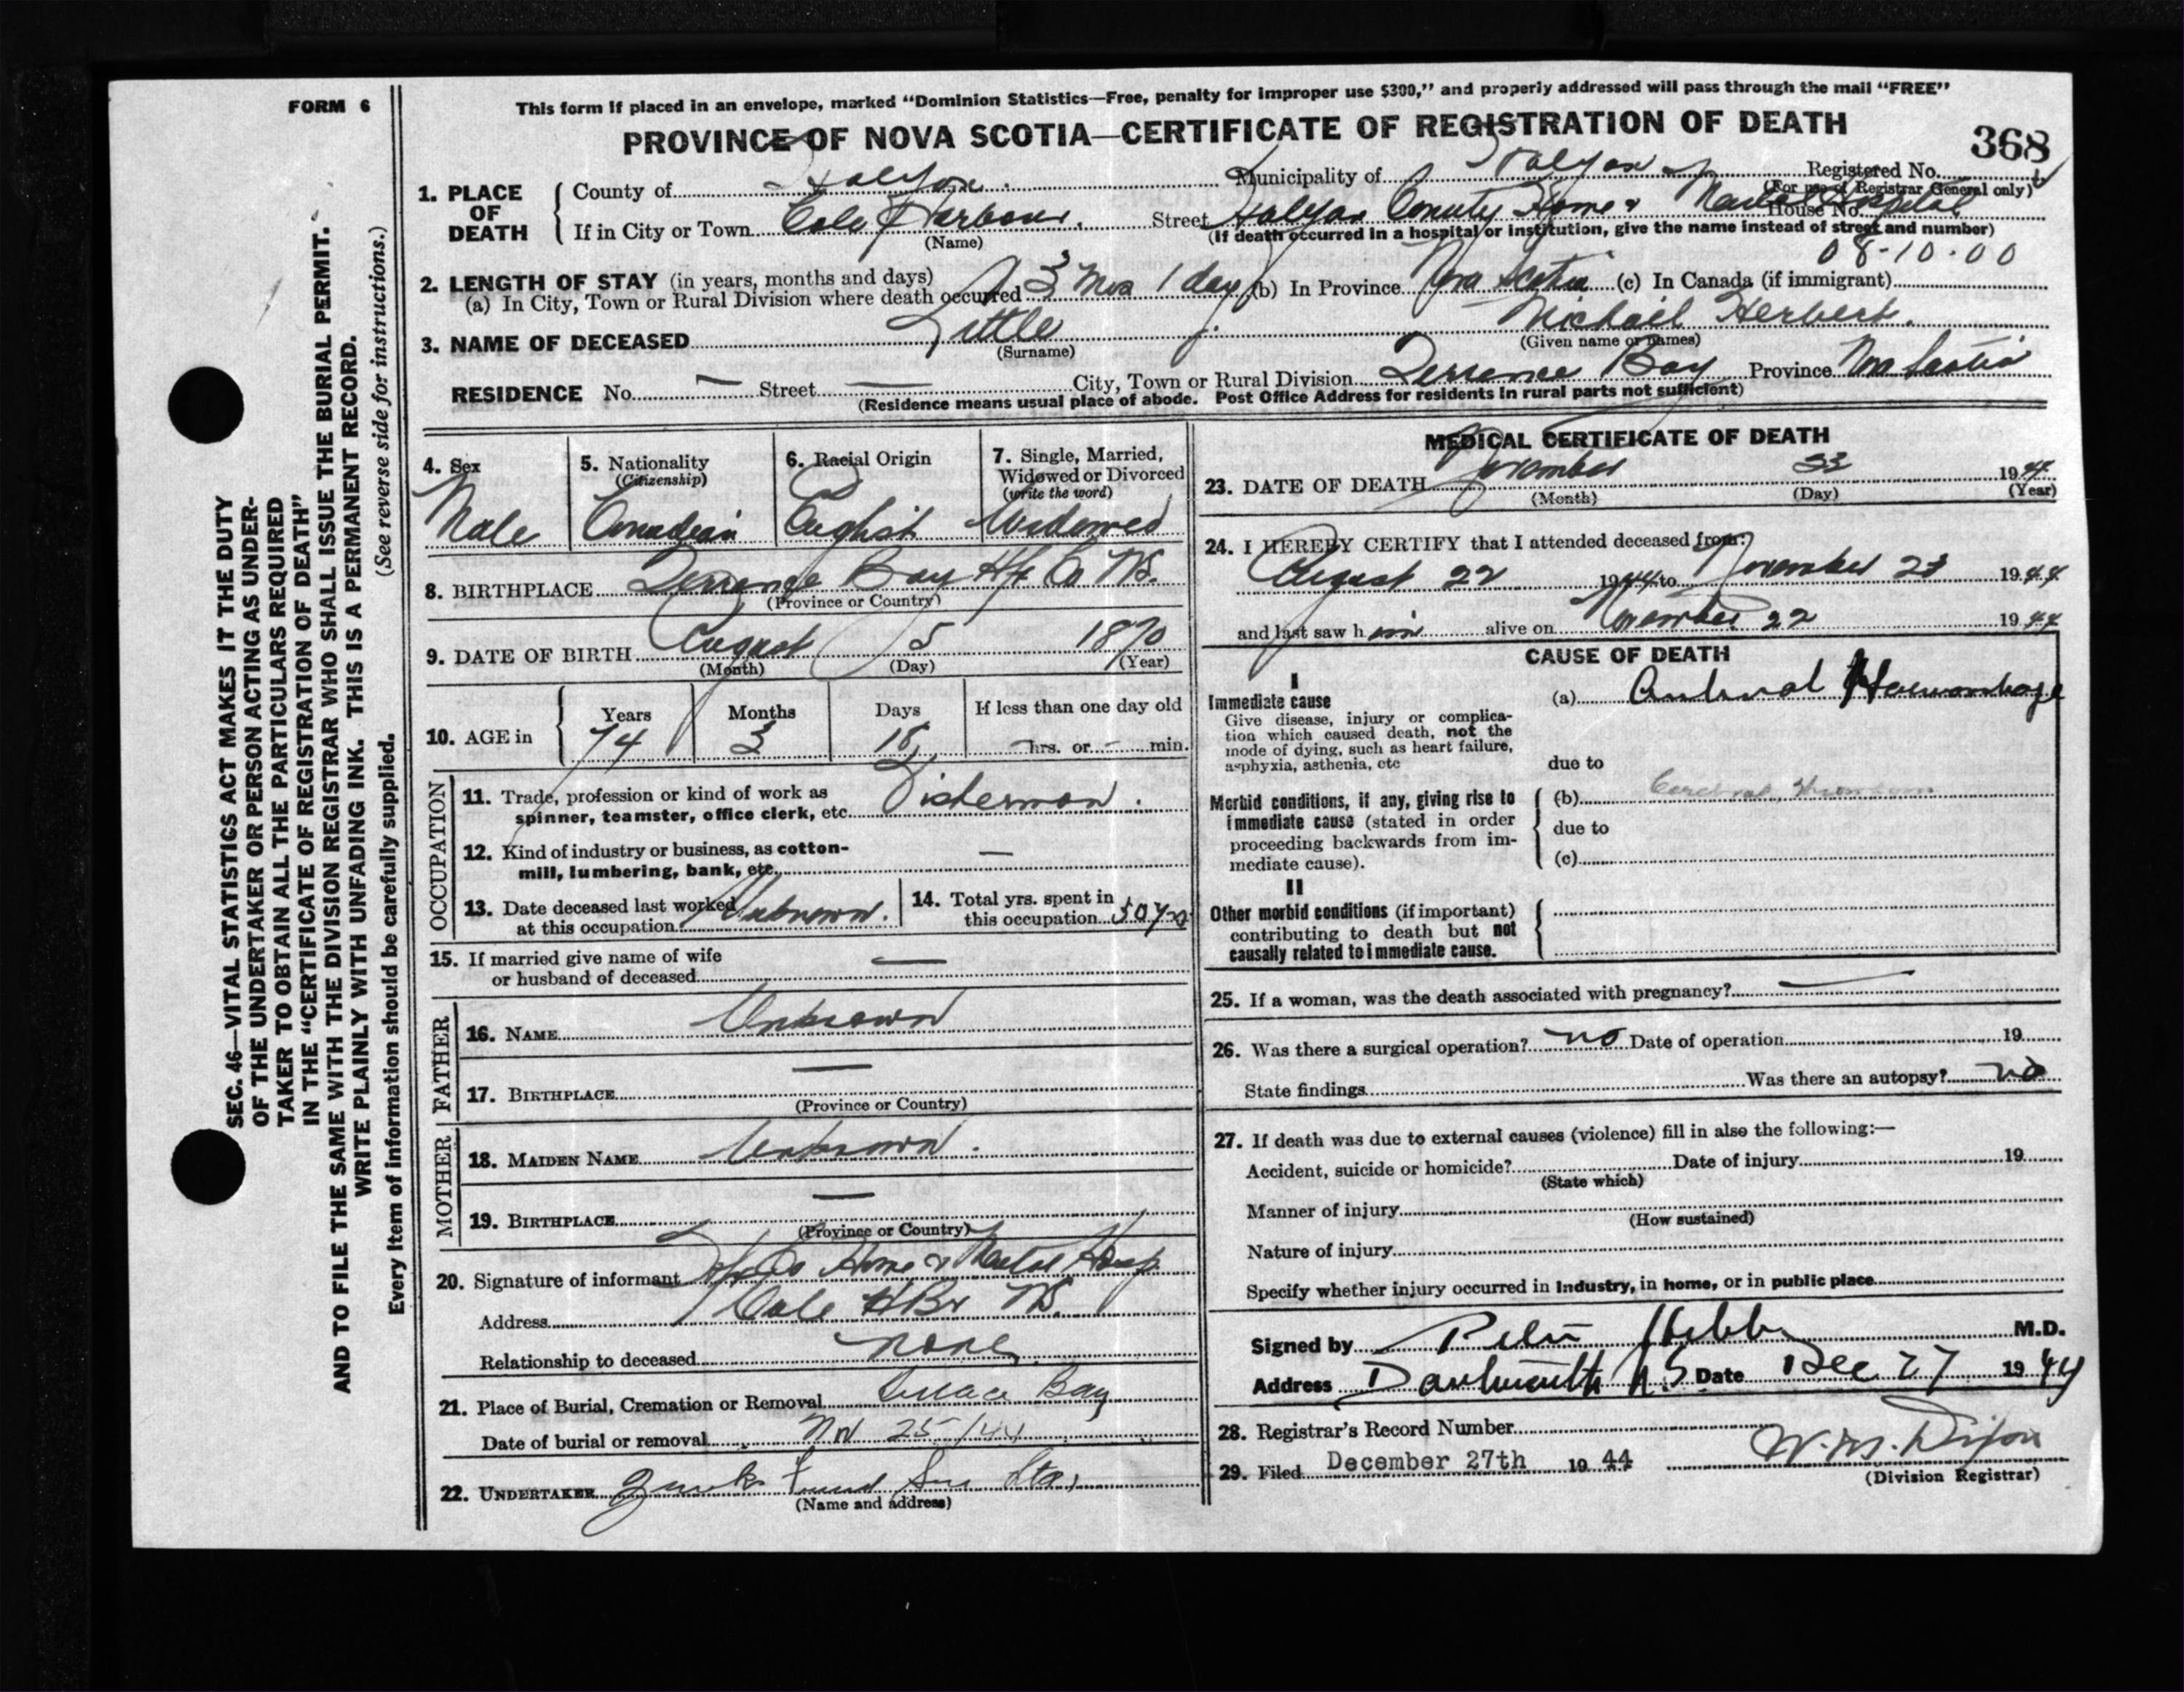 FORM 6
This form if placed in an envelope, marked "Dominion Statistics—Free, penalty for improper use $300," and properly addressed will pass through the mail "FREE"
PROVINCE OF NOVA SCOTIA—CERTIFICATE OF REGISTRATION OF DEATH
368
1. PLACE OF DEATH
County of Halifax Municipality of Halifax Registered No.
(For use of Registrar General only)
If in City or Town Cole Harbour. Street Halifax County Home & Mental Hospital House No.
(Name) (If death occurred in a hospital or institution, give the name instead of street and number)
08-10-00
2. LENGTH OF STAY (in years, months and days)
(a) In City, Town or Rural Division where death occurred 3 Mos 1 day (b) In Province Nova Scotia (c) In Canada (if immigrant)
3. NAME OF DECEASED Little Michael Herbert.
(Surname) (Given name or names)
RESIDENCE No. — Street — City, Town or Rural Division Terrence Bay Province Nova Scotia
(Residence means usual place of abode. Post Office Address for residents in rural parts not sufficient)
4. Sex
Male
5. Nationality
(Citizenship)
Canadian
6. Racial Origin
English
7. Single, Married, Widowed or Divorced
(write the word)
Widowed
8. BIRTHPLACE Terrence Bay Hfx Co NS.
(Province or Country)
9. DATE OF BIRTH August 5 1870
(Month) (Day) (Year)
10. AGE in
Years Months Days If less than one day old
74 3 18 - hrs. or - min.
OCCUPATION
11. Trade, profession or kind of work as
spinner, teamster, office clerk, etc. Fisherman.
12. Kind of industry or business, as cotton-
mill, lumbering, bank, etc. —
13. Date deceased last worked
at this occupation Unknown.
14. Total yrs. spent in
this occupation 50 yrs
15. If married give name of wife
or husband of deceased —
FATHER
16. NAME Unknown
17. BIRTHPLACE —
(Province or Country)
MOTHER
18. MAIDEN NAME Unknown.
19. BIRTHPLACE —
(Province or Country)
20. Signature of informant Hfx Co Home & Mental Hosp
Address Cole HBr NS.
Relationship to deceased None
21. Place of Burial, Cremation or Removal Terrace Bay
Date of burial or removal Nov 25/44
22. UNDERTAKER
(Name and address)
MEDICAL CERTIFICATE OF DEATH
23. DATE OF DEATH November 23 1944
(Month) (Day) (Year)
24. I HEREBY CERTIFY that I attended deceased from:
August 22 1944 to November 23 1944
and last saw him alive on November 22 1944
CAUSE OF DEATH
I
Immediate cause
Give disease, injury or complica-
tion which caused death, not the
mode of dying, such as heart failure,
asphyxia, asthenia, etc
(a) Cerebral Haemorrhage
due to
Morbid conditions, if any, giving rise to
immediate cause (stated in order
proceeding backwards from im-
mediate cause).
(b) Cerebral
due to
(c)
II
Other morbid conditions (if important)
contributing to death but not
causally related to immediate cause.
25. If a woman, was the death associated with pregnancy? —
26. Was there a surgical operation? no Date of operation 19
State findings Was there an autopsy? no
27. If death was due to external causes (violence) fill in also the following:—
Accident, suicide or homicide? Date of injury 19
(State which)
Manner of injury
(How sustained)
Nature of injury
Specify whether injury occurred in industry, in home, or in public place
Signed by Peter Hebb M.D.
Address Dartmouth N.S Date Dec 27 1944
28. Registrar's Record Number
29. Filed December 27th 19 44 W. M. Dixon
(Division Registrar)
SEC. 46—VITAL STATISTICS ACT MAKES IT THE DUTY
OF THE UNDERTAKER OR PERSON ACTING AS UNDER-
TAKER TO OBTAIN ALL THE PARTICULARS REQUIRED
IN THE "CERTIFICATE OF REGISTRATION OF DEATH"
AND TO FILE THE SAME WITH THE DIVISION REGISTRAR WHO SHALL ISSUE THE BURIAL PERMIT.
WRITE PLAINLY WITH UNFADING INK. THIS IS A PERMANENT RECORD.
Every item of information should be carefully supplied. (See reverse side for instructions.)